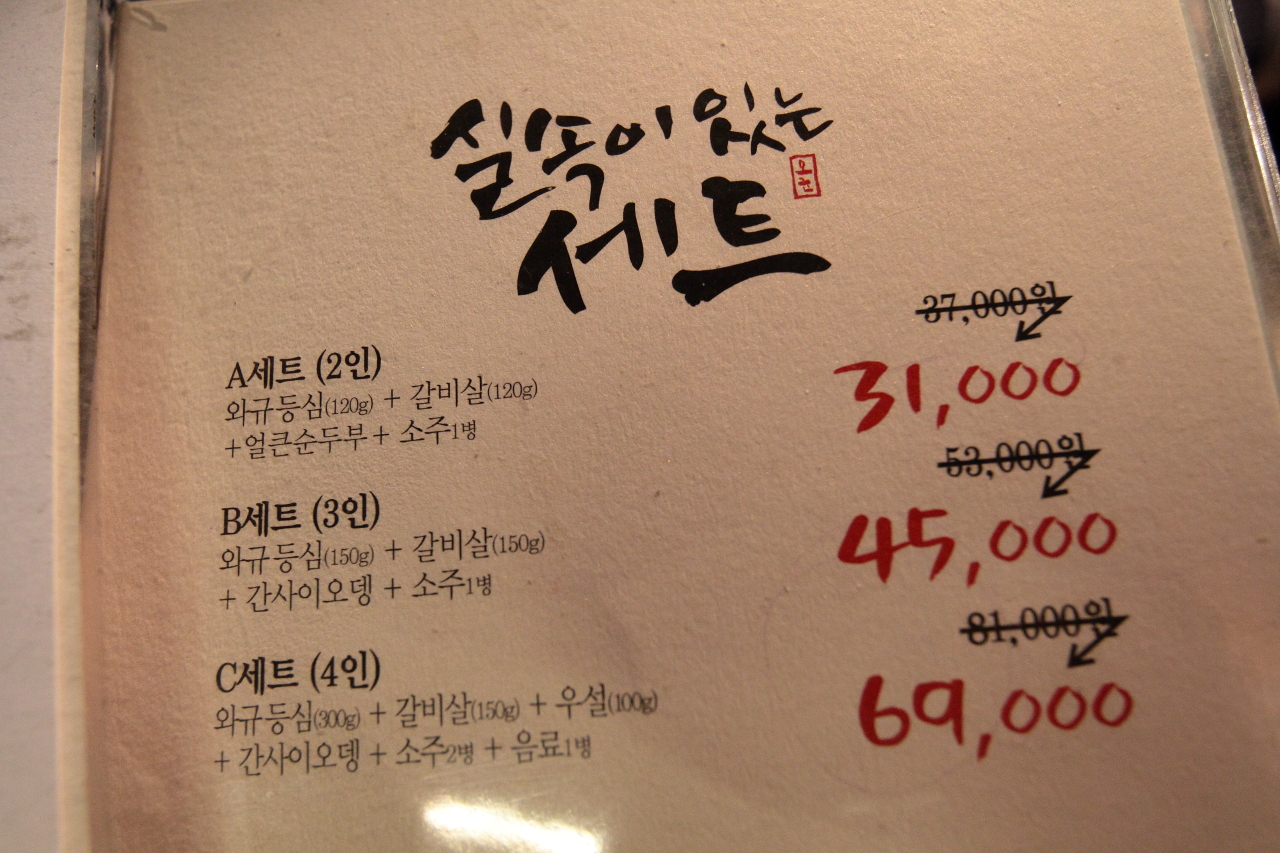 실속이 있는
오권
세트
37,000원
A세트 (2인)
31,000
와규등심(120g) + 갈비살(120g)
+얼큰순두부 + 소주1병
53,000원
B세트 (3인)
45,000
와규등심(150g) + 갈비살(150g)
+ 간사이오뎅 + 소주1병
81,000원
C세트 (4인)
69,000
와규등심(300g) + 갈비살(150g) + 우설(100g)
+ 간사이오뎅 + 소주2병 + 음료1병